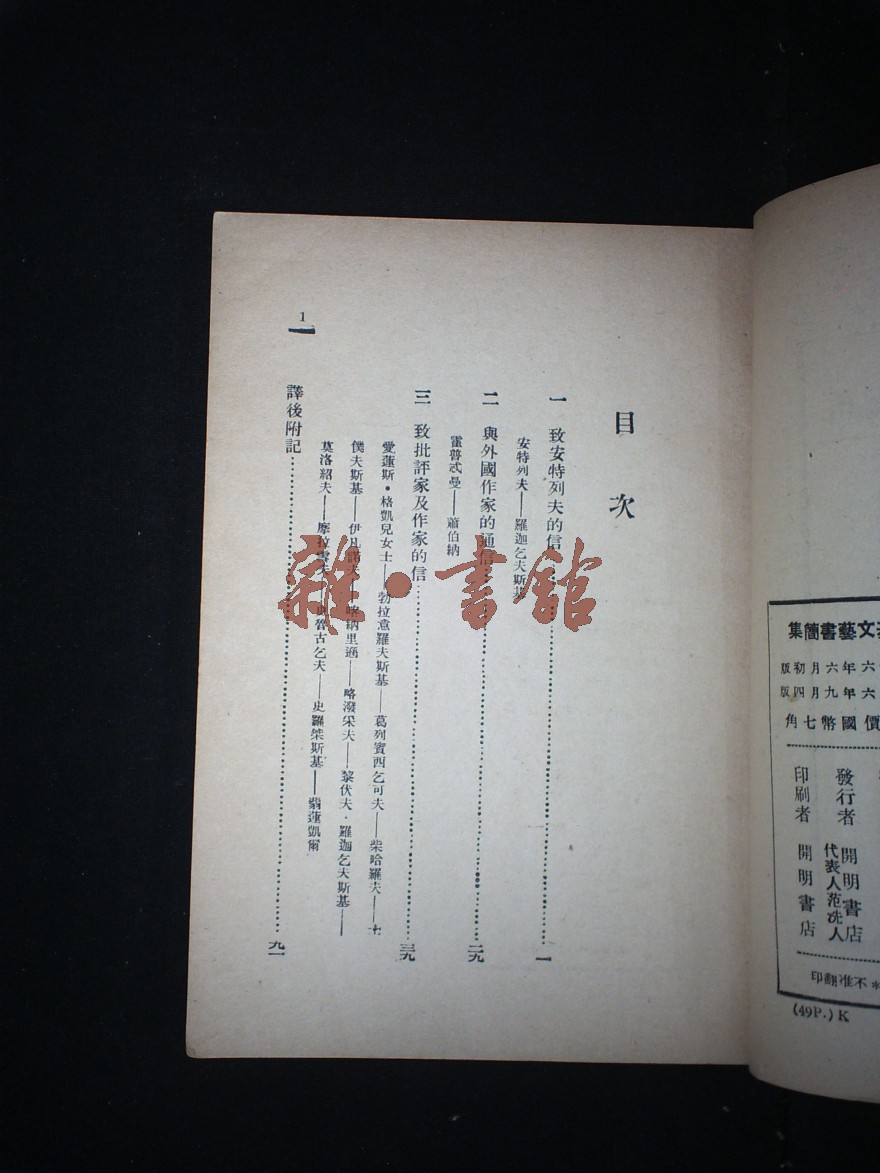 目次
一 致安特列夫的信……一
安特列夫——羅迦乞夫斯基
二 與外國作家的通信……二九
霍普忒曼——蕭伯納
三 致批評家及作家的信……三九
愛蓮斯·格凱兒女士——勃拉意羅夫斯基——葛列賓西乞可夫——柴哈羅夫——
僕夫斯基——伊凡諾夫——喀納里適——略潑宋夫——黎伏夫·羅迦乞夫斯基——
莫洛紹夫——摩拉雪夫——魯古乞夫——史羅桀斯基——翡蓮凱爾
譯後附記……九一
1
雜·書館
文藝書簡集
六年六月初版
六年九月四版
價國幣七角
發行者 開明書店
代表人范洗人
印刷者 開明書店
*不准翻印
(49P.) K